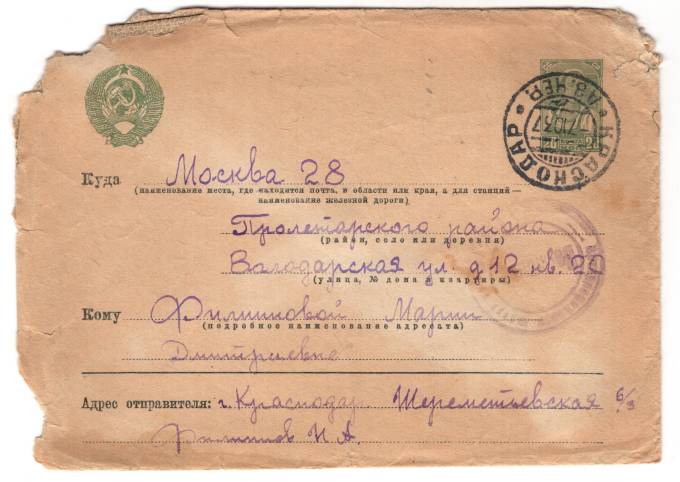 КРАСНОДАР
АЗ.ЧЕР.
7.10.37
Куда Москва 28
(наименование места, где находится почта, и области или края, а для станций—
наименование железной дороги)
Пролетарского района
(район, село или деревня)
Валодарская ул. д 12 кв. 20
(улица, № дома и квартиры)
Кому Филиповой Марии
(подробное наименование адресата)
Дмитриевне
Адрес отправителя: г. Краснодар. Шереметьевская 6/3
Филипов И А